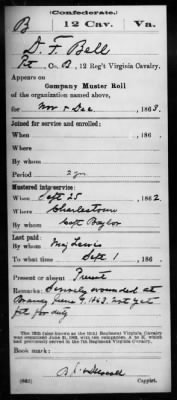 (Confederate.)
B 12 Cav. Va.
D. F. Bell
Pt, Co. B, 12 Reg't Virginia Cavalry.
Appears on
Company Muster Roll
of the organization named above,
for Nov & Dec, 1863.
Joined for service and enrolled:
When , 186 .
Where
By whom
Period 2 yr
Mustered into service:
When Sept 25, 1862
Where Charlestown
By whom Capt Baylor
Last paid:
By whom Maj Lewis
To what time Sept 1, 186 .
Present or absent Present
Remarks: Severely wounded at
June 9, 1863. Not yet
fit for duty
The 12th (also known as the 10th) Regiment Virginia Cavalry
was organized June 21, 1862, with ten companies, A to K, which
had previously served in the 7th Regiment Virginia Cavalry.
Book mark:
(642)
Copyist.